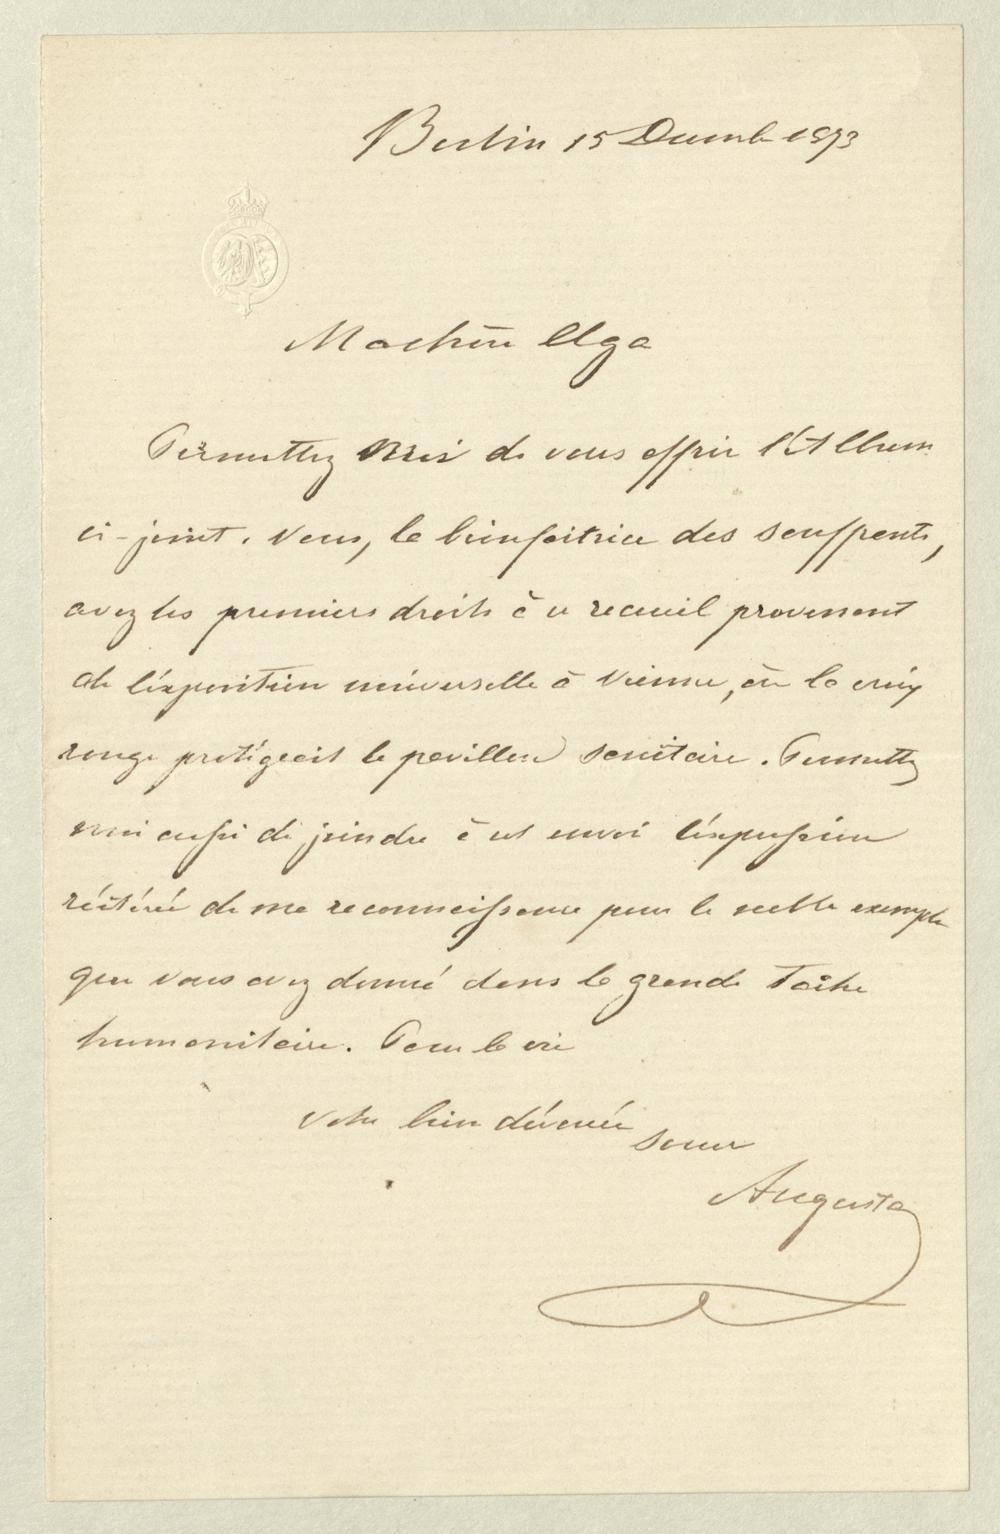 Berlin 15 Decembr 1873
Ma chère Olga
Permettez moi de vous offrir l'Album
ci-joint. Vous, la bienfaitrice des souffrants,
avez les premiers droits à ce recueil provenant
de l'éxposition universelle à Vienne, où la croix
rouge protégeait le pavillon sanitaire. Permettez
moi aussi de joindre à cet envoi l'éxpression
réitérée de ma reconnaissance pour le noble exemple
que vous avez donné dans la grande tâche
humanitaire. Pour la vie
votre bien dévouée
soeur
Augusta